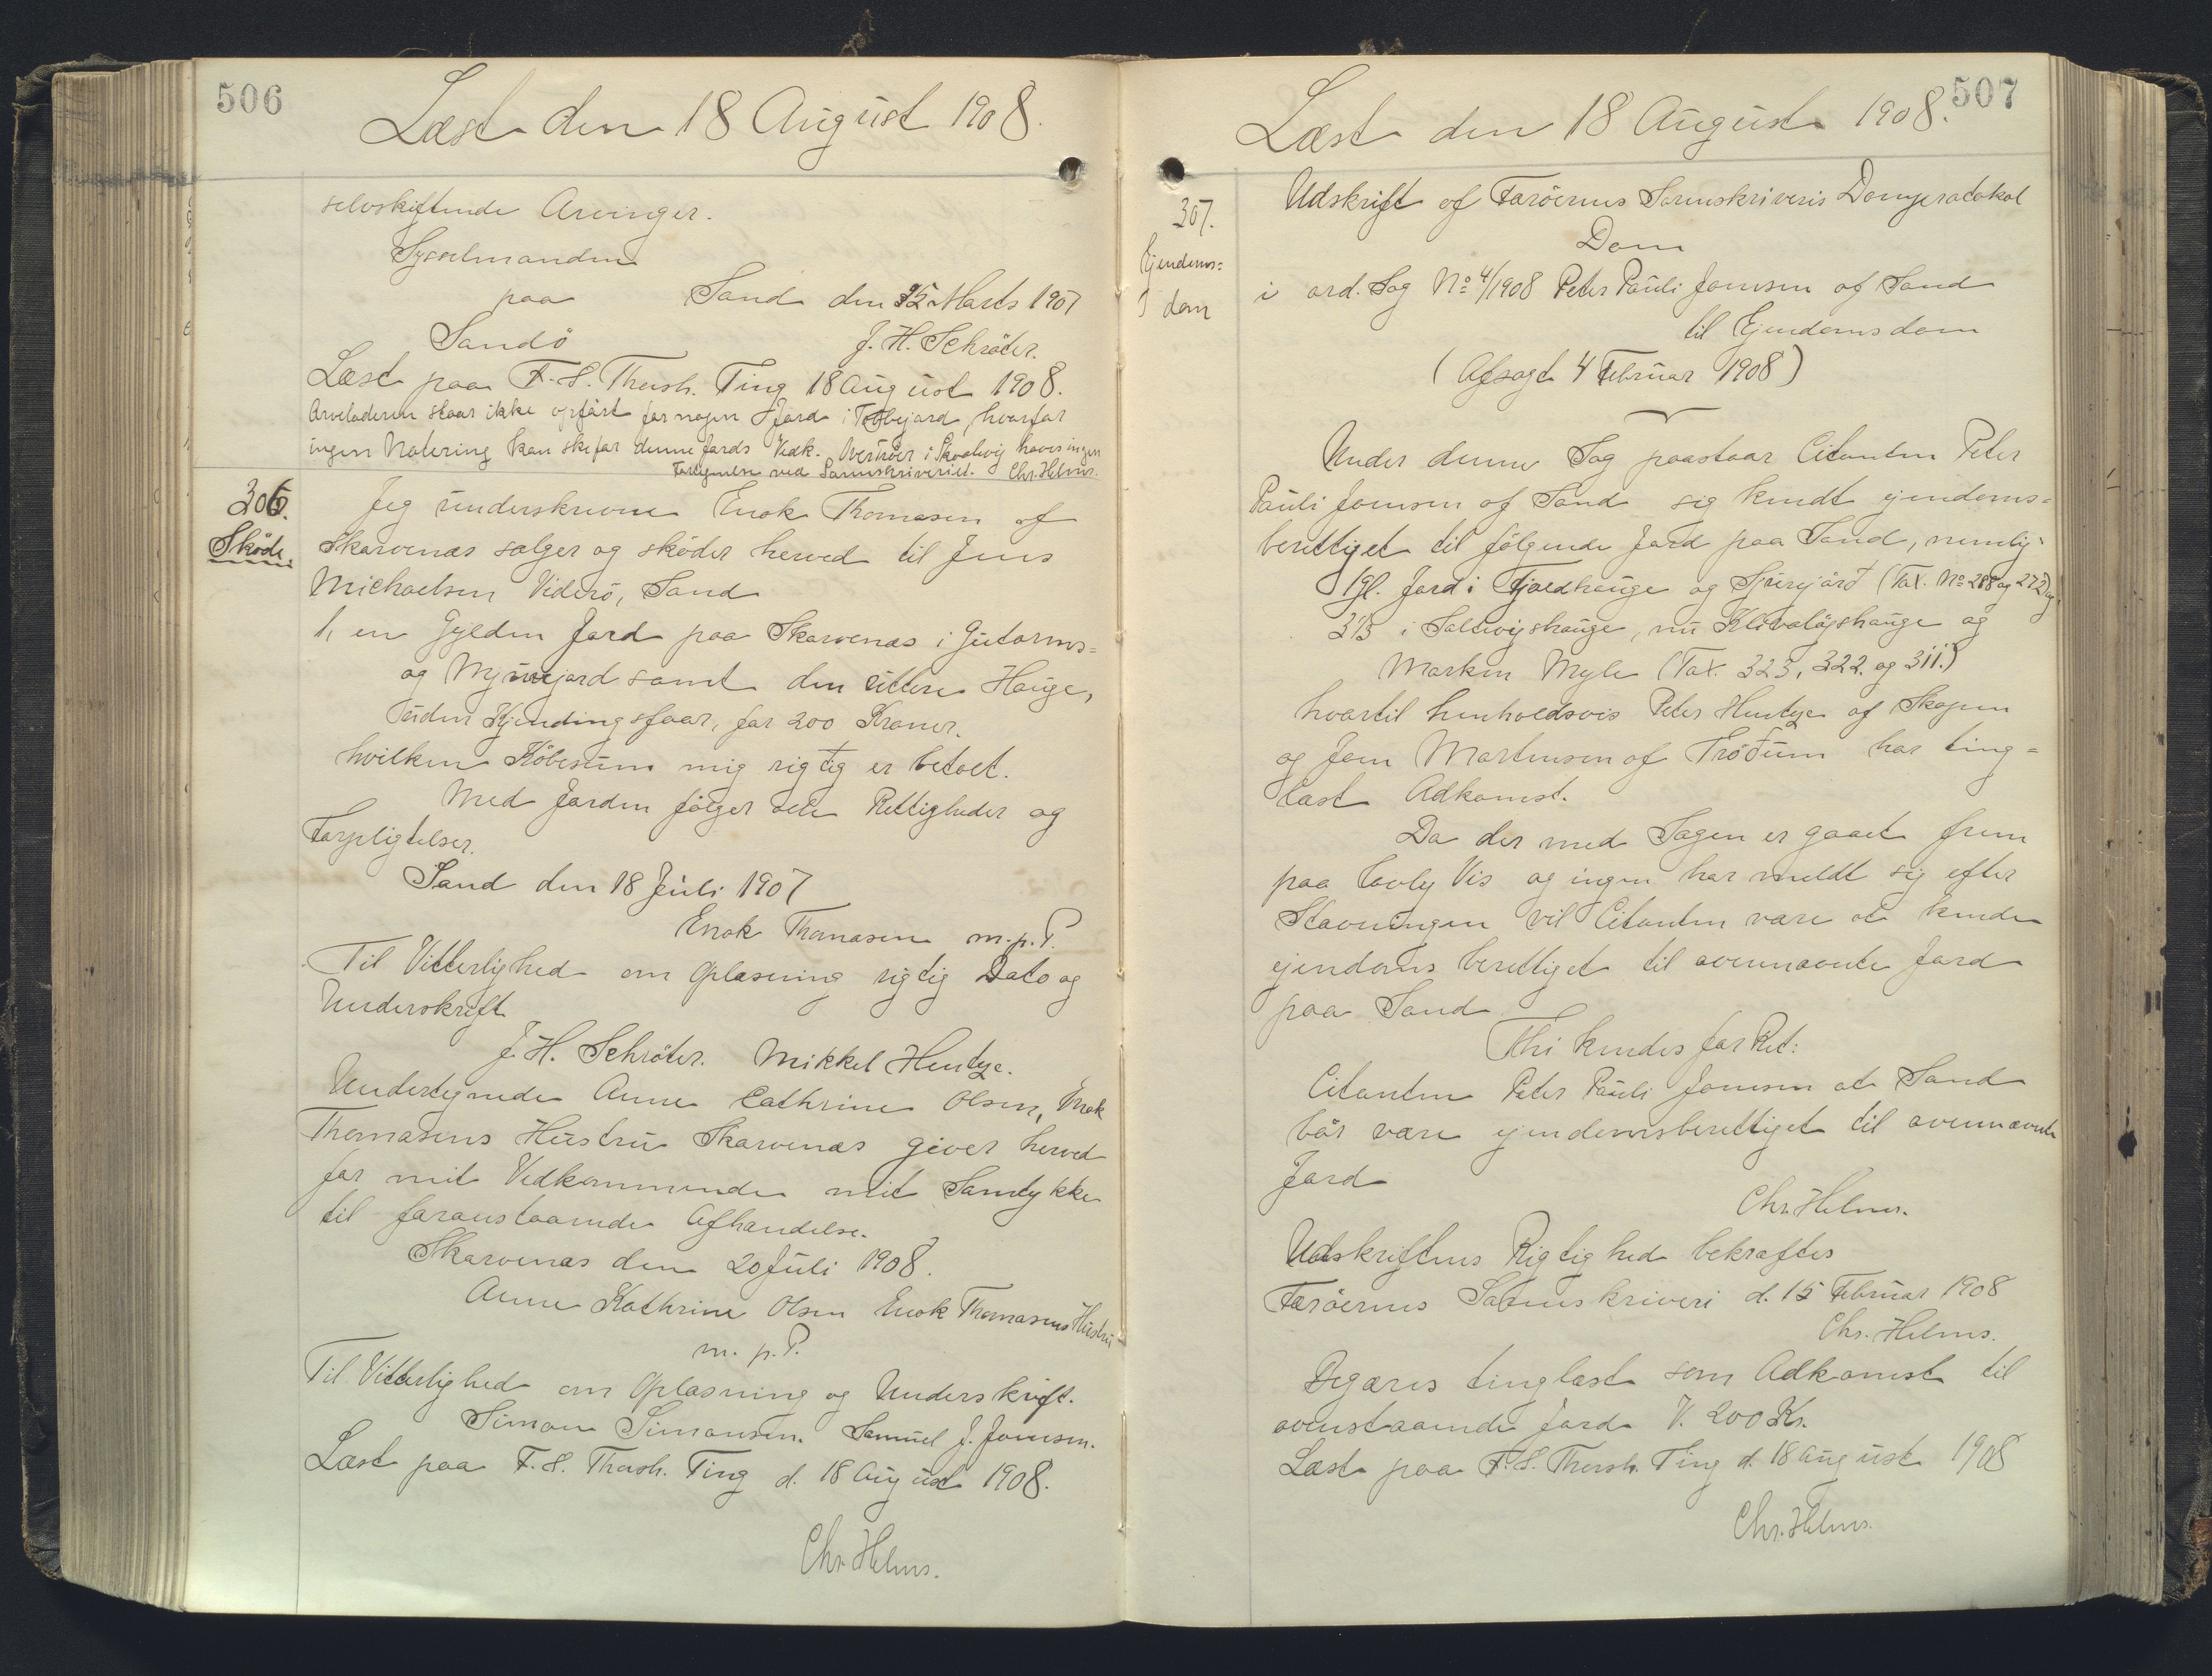 506
Læst den 18 August 1908.
selvskiftende Arvinger.
Sysselmanden
paa Sand den 15 Marts 1907
Sandö J. H. Schröter.
Læst paa F. S. Thersh. Ting 18 August 1908.
Arveladeren staar ikke opført for nogen Jord i Tøbbejard, hvorfor
ingen Notering kan ske for denne Jords Vedk. Over Huse i Skaalevig haves ingen
Fortegnelse ved Sorenskriveriet. Chr. Helms.
306.
Sköde.
Jeg underskrevne Enok Thomasen af
Skarvenæs sælger og sköder herved til Jens
Michaelsen Viderö, Sand
1, en Gylden Jord paa Skarvenæs i Gutorms=
og Myrejard samt den uttere Hauge,
uden Kjendingsfaar, for 200 Kroner.
hvilken Köbesum mig rigtig er betalt.
Med Jorden fölger alle Rettigheder og
Forpligtelser.
Sand den 18 Juli 1907
Enok Thomasen m.p.P.
Til Vitterlighed om Oplæsning rigtig Dato og
Underskrift
J. H. Schröter. Mikkel Hentze.
Undertegnede Anne Cathrine Olsen, Enok
Thomasens Hustru Skarvenæs giver herved
for mit Vedkommende mit Samtykke
til foranstaaende Afhændelse.
Skarvenæs den 20 Juli 1908.
Anne Kathrine Olsen Enok Thomasens Hustru
m. p. P.
Til Vitterlighed om Oplæsning og Underskrift.
Simon Simonsen. Samuel J. Joensen.
Læst paa F. S. Thersh. Ting d. 18 August 1908.
Chr. Helms.
507
Læst den 18 August 1908.
307.
Ejendoms=
dom
Udskrift af Færöernes Sorenskriveris Domprotokol
Dom
i ord. Sag No 4/1908 Peter Pauli Joensen af Sand
til Ejendomsdom
(Afsagt 4 Februar 1908)
Under denne Sag paastaar Citanten Peter
Pauli Joensen af Sand sig kendt ejendoms=
berettiget til fölgende Jord paa Sand, nemlig
1 gl. Jord i Fjaldhauge og Spurejard (Tax. No 288 og 272) og
i Saltvigshauge, nu Klivalöjshauge og
Marken Myle (Tax. 323, 322 og 311.)
hvortil henholdsvis Peter Hentze af Skopun
og Joen Martensen af Tröðum har ting=
læst Adkomst.
Da der med Sagen er gaaet frem
paa lovlig Vis og ingen har meldt sig efter
Stævningen vil Citanten være at kende
ejendoms berettiget til ovennævnte Jord
paa Sand
Thi kendes for Ret:
Citanten Peter Pauli Joensen af Sand
bör være ejendomsberettiget til ovennævnte
Jord
Chr. Helms.
Udskriftens Rigtighed bekræftes
Færöernes Sorenskriveri d. 15 Februar 1908
Chr. Helms.
Begæres tinglæst som Adkomst til
ovenstaaende Jord. V. 200 Kr.
Læst paa F. S. Thersh. Ting d. 18 August 1908
Chr. Helms.